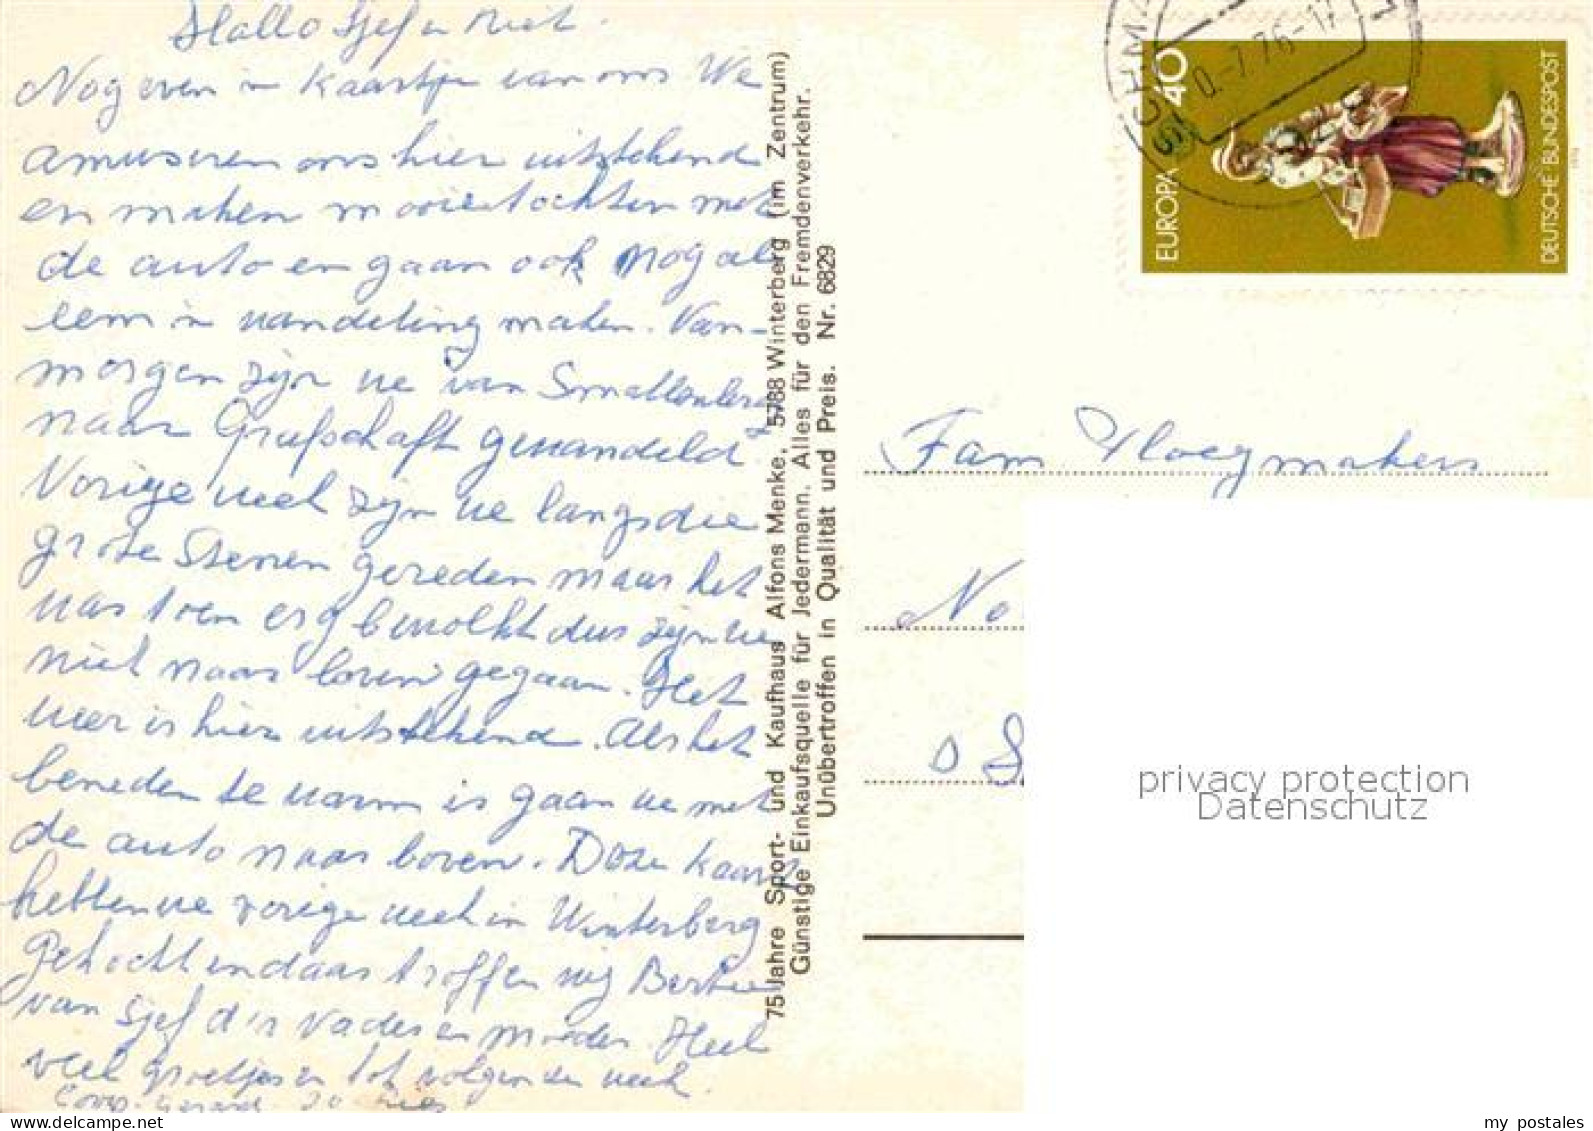 Hallo Sjef en Riet.
Nog even 'n kaartje van ons We
amuseren ons hier uitstekend
en maken mooie tochten met
de auto en gaan ook nog al
eem 'n wandeling maken. Van-
morgen zijn we van Smallenberg
naar Grafschaft gewandeld
Vorige week zijn we langs die
grote Stenen gereden maar het
was toen erg bewolkt dus zijn we
niet naar boven gegaan. Het
weer is hier uitstekend. Als het
beneden te warm is gaan we met
de auto naar boven. Deze kaart
hebben we vorige week in Winterberg
gekocht en daar troffen wij Bertie
van Sjef d'r vader en moeder. Heel
veel groetjes en tot volgende week.
Gerard
75 Jahre Sport- und Kaufhaus Alfons Menke, 5788 Winterberg (im Zentrum)
Günstige Einkaufsquelle für Jedermann. Alles für den Fremdenverkehr.
Unübertroffen in Qualität und Preis. Nr. 6829
EUROPA 40
DEUTSCHE BUNDESPOST
SCHMA
0.-7.76-17
Fam Ploegmakers
No
privacy protection
Datenschutz
my_postales
delcampe.net